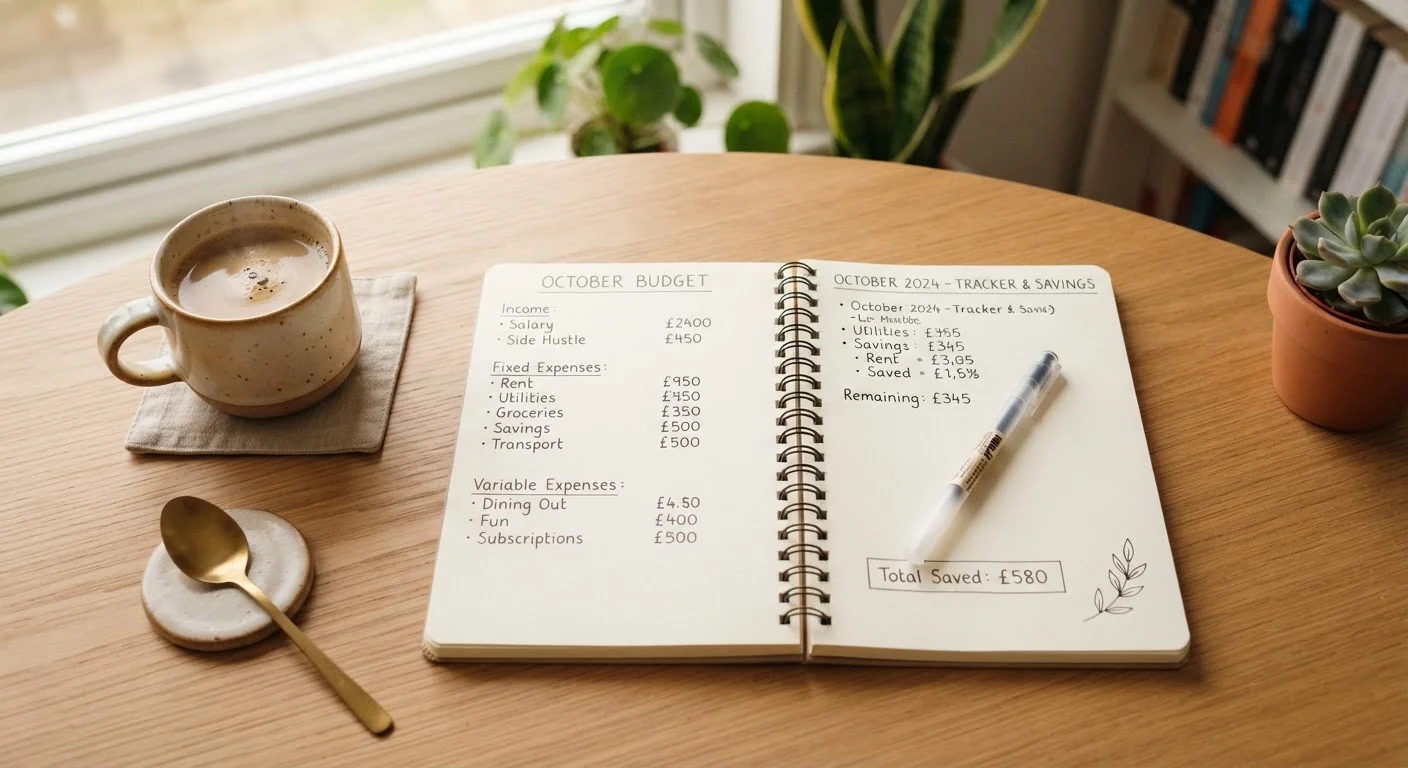 OCTOBER BUDGET
Income:
• Salary £2400
• Side Hustle £450
Fixed Expenses:
• Rent £950
• Utilities £450
• Groceries £350
• Savings £500
• Transport £500
Variable Expenses:
• Dining Out £4.50
• Fun £400
• Subscriptions £500
OCTOBER 2024 - TRACKER & SAVINGS
• October 2024 - Tracker &
• Utilities:
• Savings: £345
• Rent =
• Saved =
Remaining: £345
Total Saved: £580